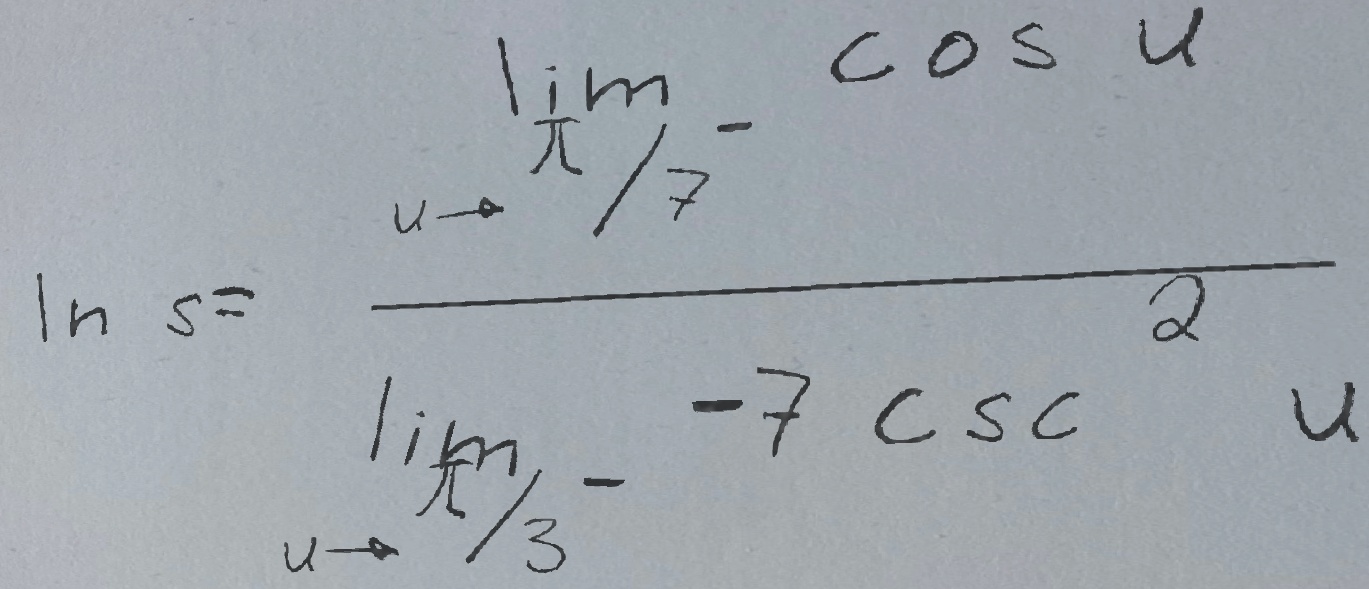 ln s = \frac{\lim_{u \to \pi/7^-} \cos u}{\lim_{u \to \pi/3^-} -7 \csc^2 u}